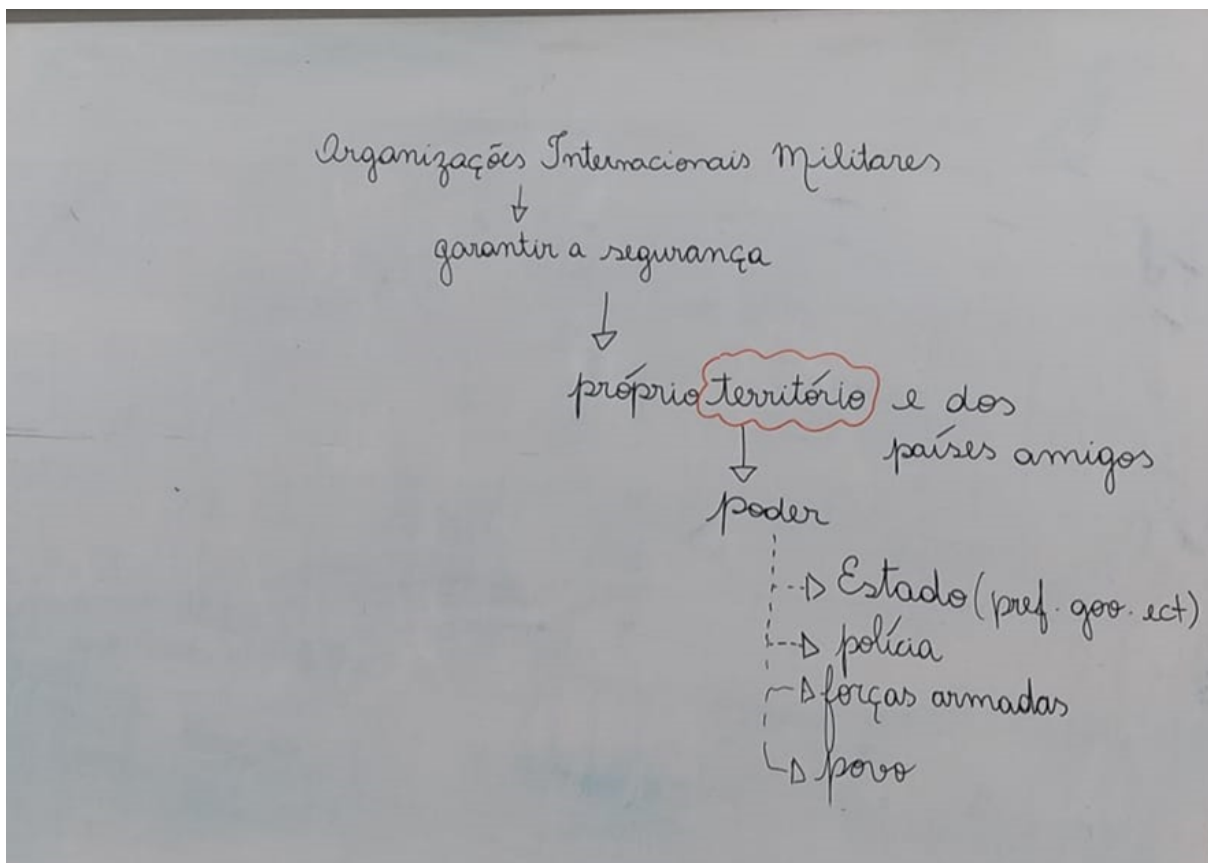 Organizações Internacionais Militares
garantir a segurança
próprio território e dos
países amigos
poder
Estado (pref. gov. ect)
polícia
forças armadas
povo